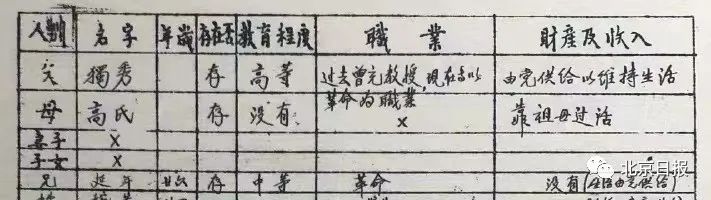 人别 名字 年歲 存在否 教育程度 職業 財產及收入
父 獨秀 存 高等 过去曾充教授，现在则以 由党供给以維持生活
革命为職業
母 高氏 存 没有 × 靠祖母过活
妻子 ×
子女 ×
兄 延年 存 中等 革命 没有(生活由党供给)
北京日报